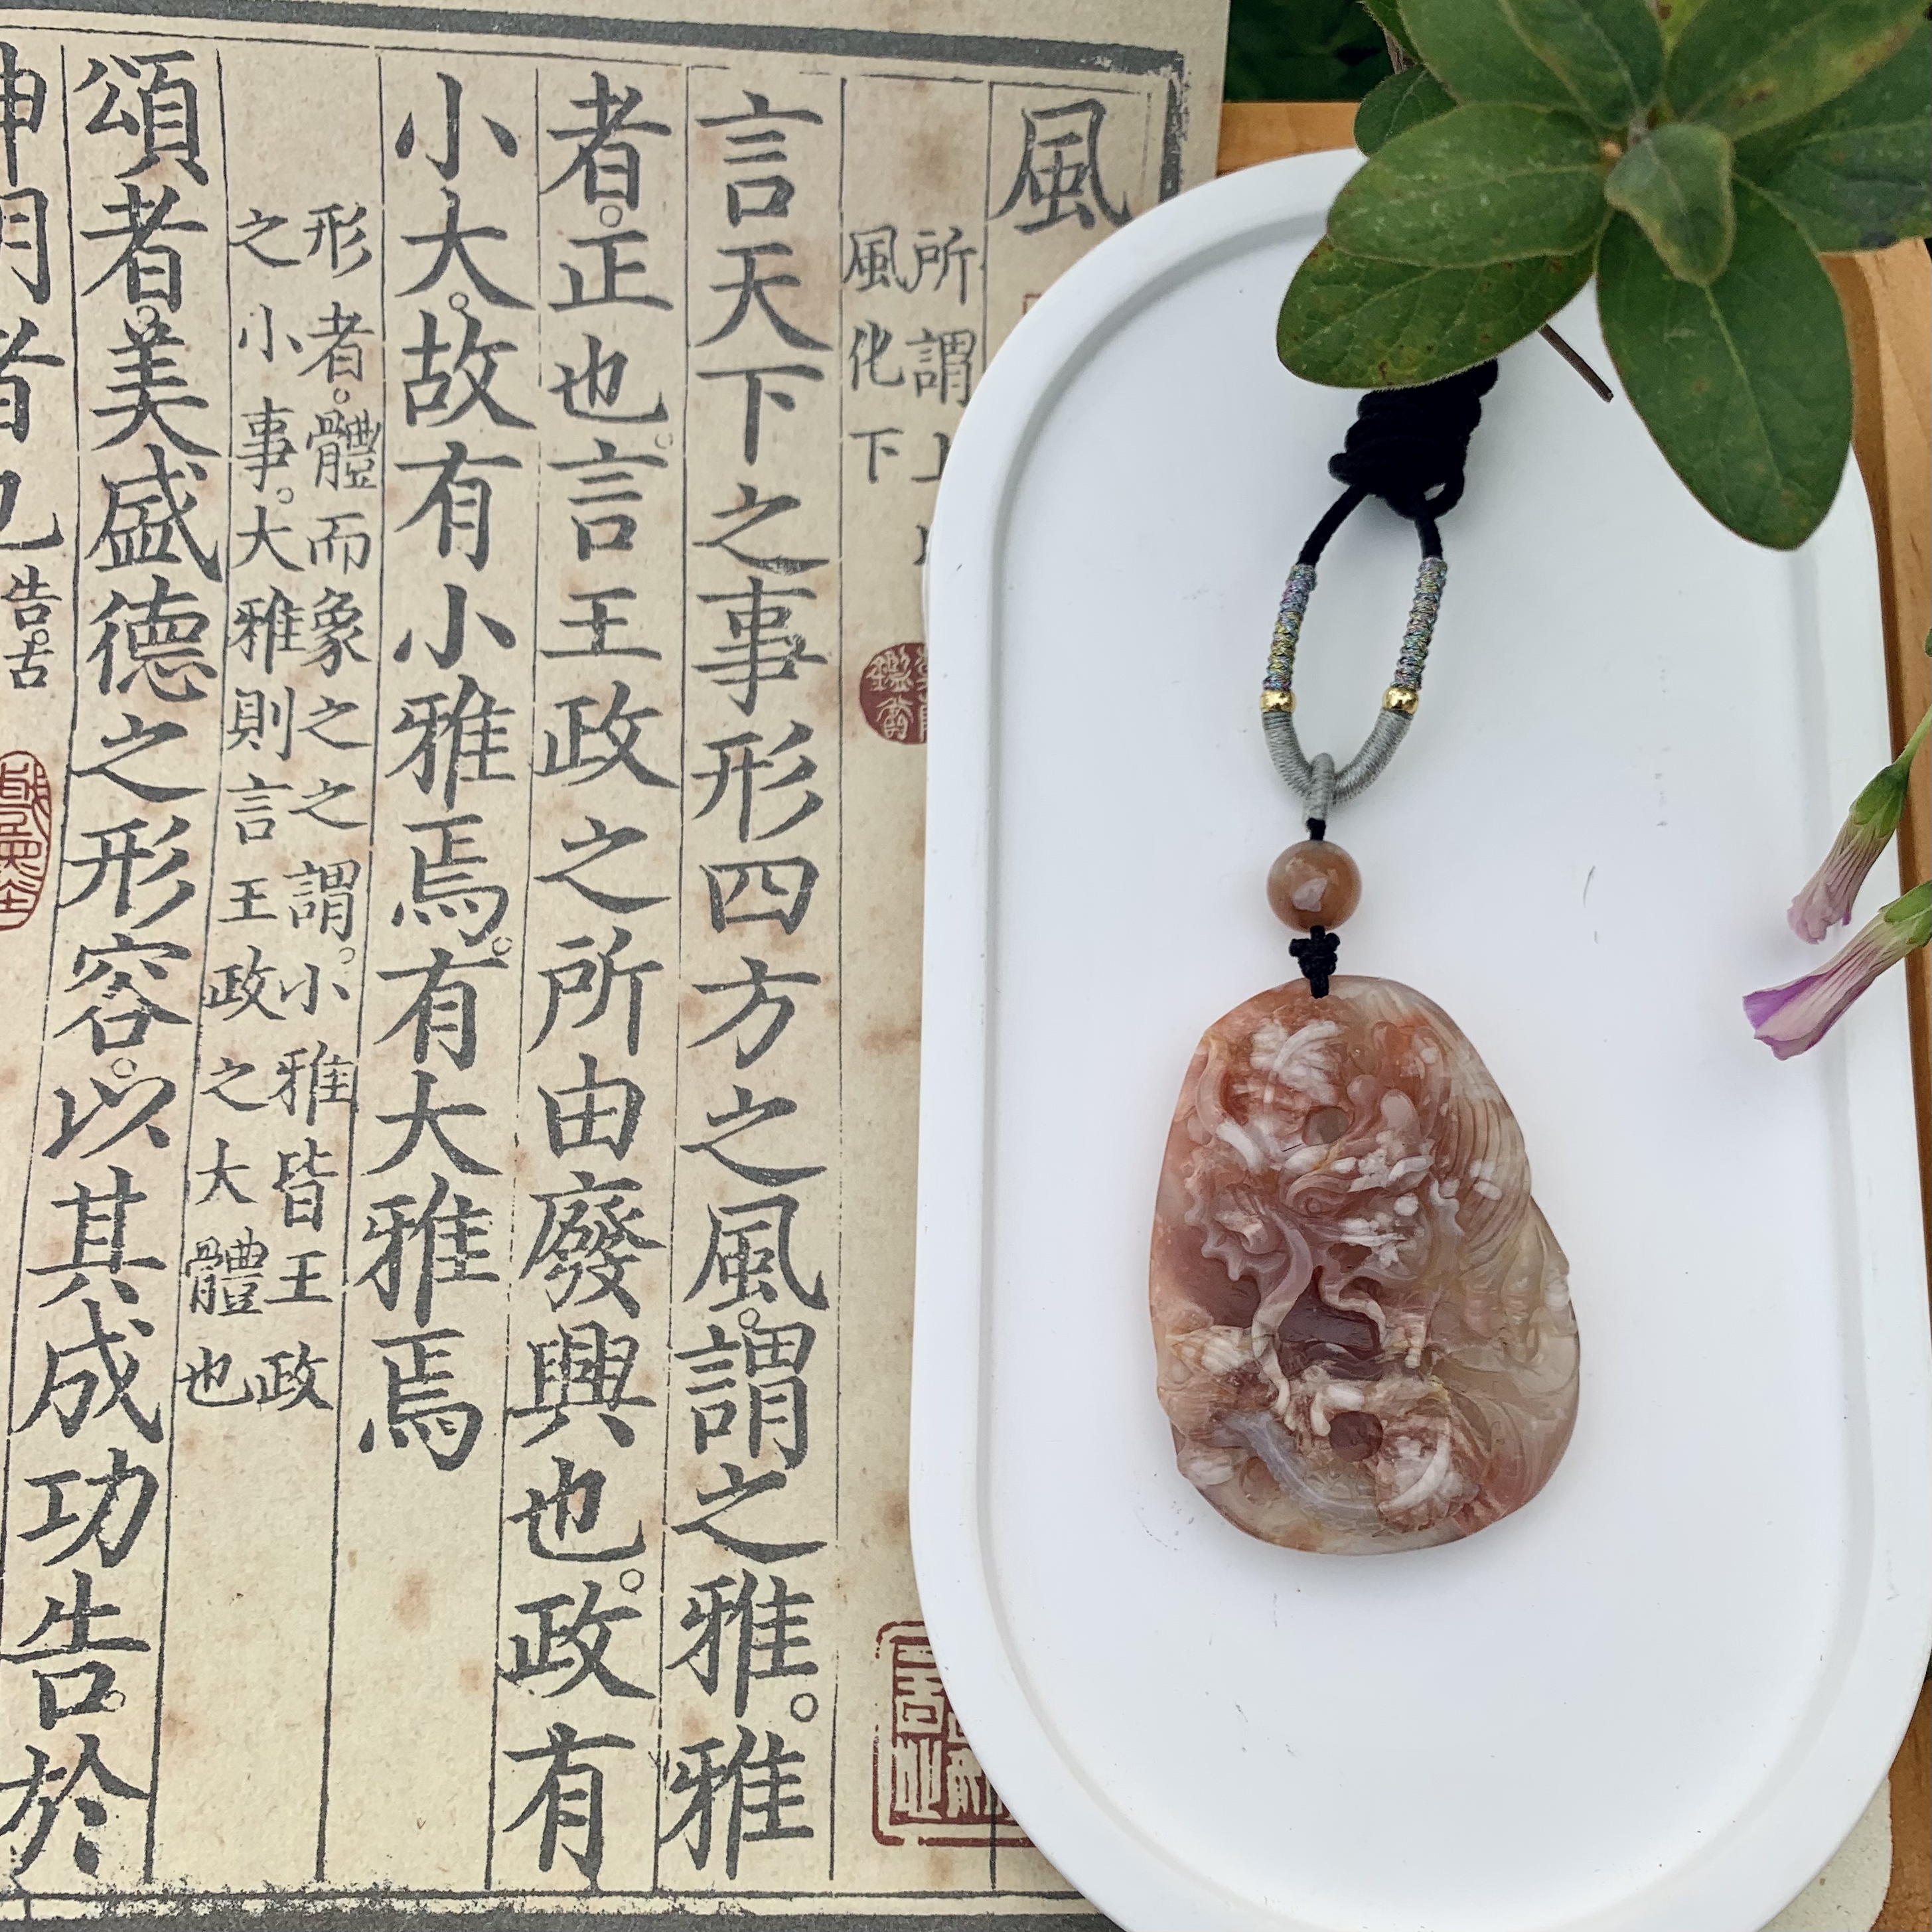 風
所謂上
風化下
言天下之事形四方之風。謂之雅。雅
者。正也言王政之所由廢興也。政有
小大。故有小雅焉。有大雅焉
形者。體而象之之謂。小雅皆王政
之小事。大雅則言王政之大體也
頌者。美盛德之形容。以其成功告於
神明者也
告。古
鑑賞